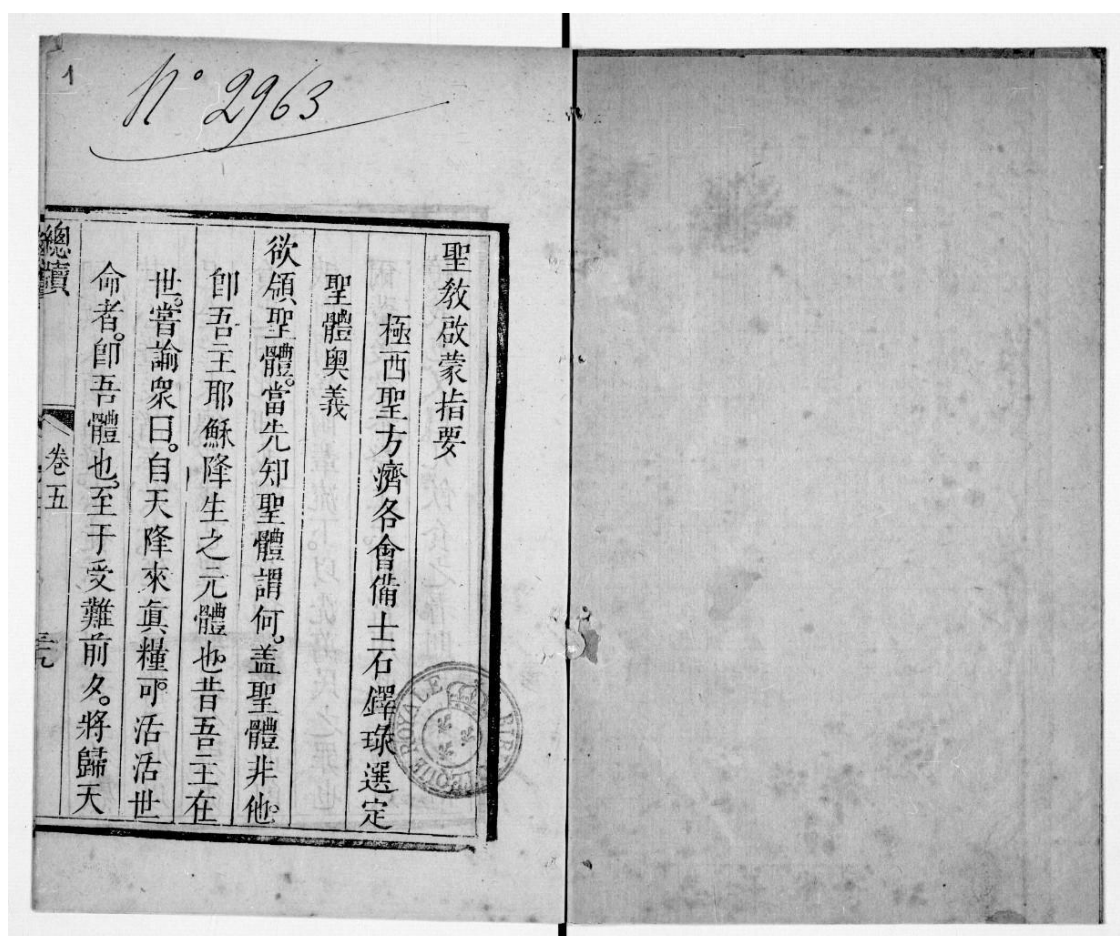 1
N° 2963
聖教啟蒙指要
極西聖方濟各會脩士石鐸琭選定
聖體奧義
欲領聖體。當先知聖體謂何。盖聖體非他。
卽吾主耶穌降生之元體也。昔吾主在
世。嘗諭衆曰。自天降來眞糧。可活活世
命者。卽吾體也。至于受難前夕。將歸天
總牘
卷五
BIBLIOTHEQUE ROYALE